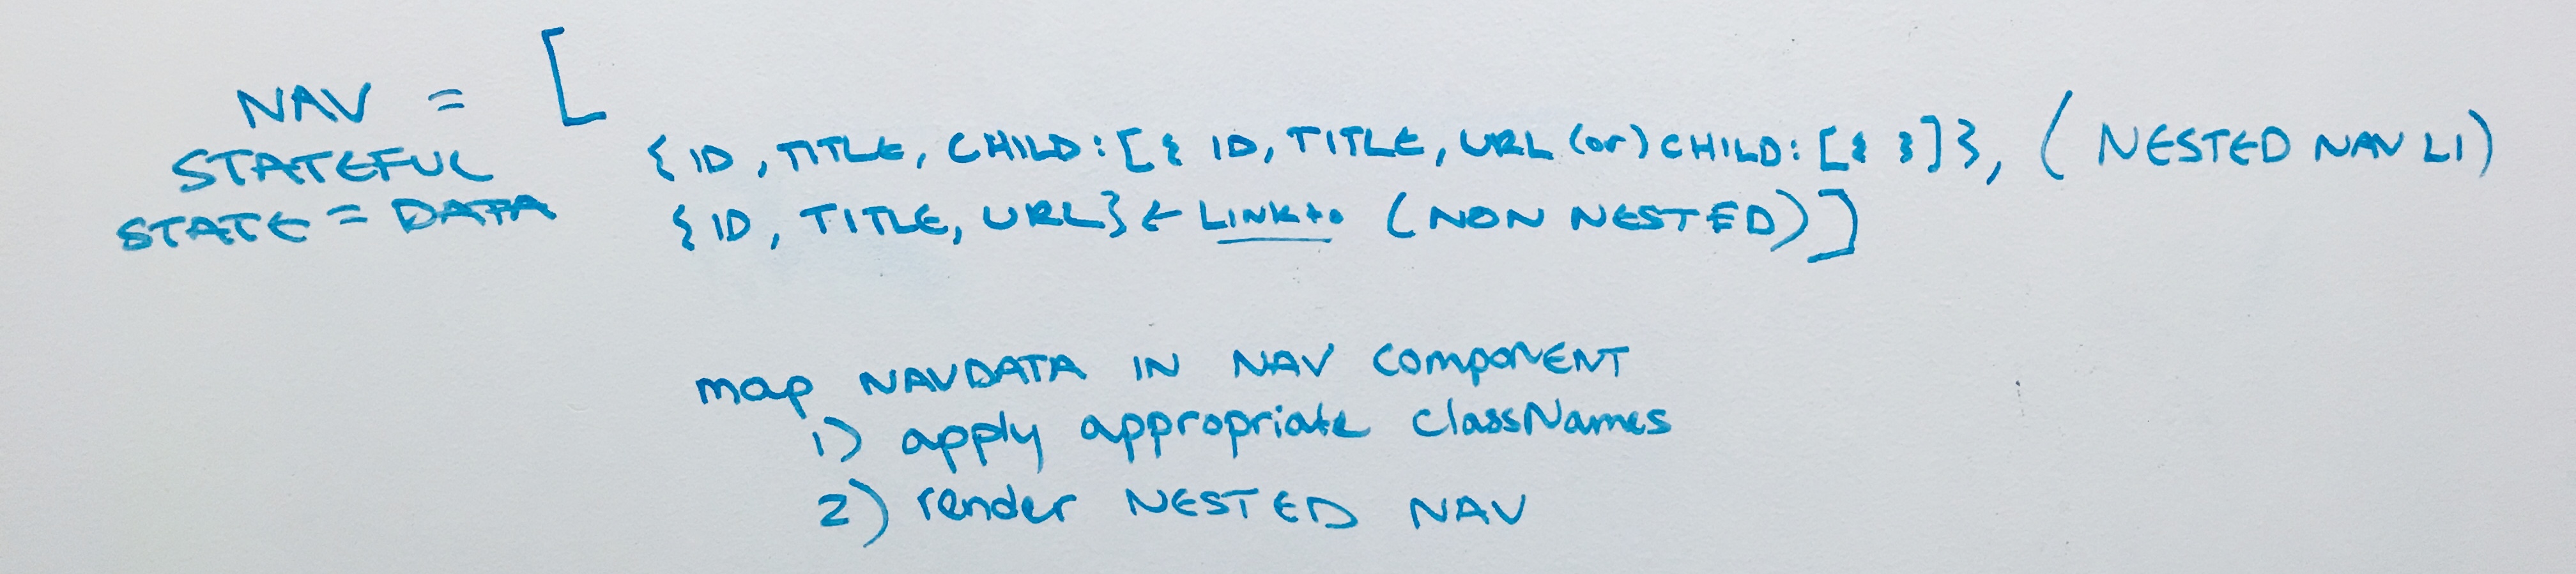 NAV = [
STATEFUL
STATE = DATA
{ID, TITLE, CHILD: [{ ID, TITLE, URL (or) CHILD: [{ }]}, (NESTED NAV LI)
{ID, TITLE, URL} ← LINK to (NON NESTED)]
map NAVDATA IN NAV COMPONENT
1) apply appropriate classNames
2) render NESTED NAV